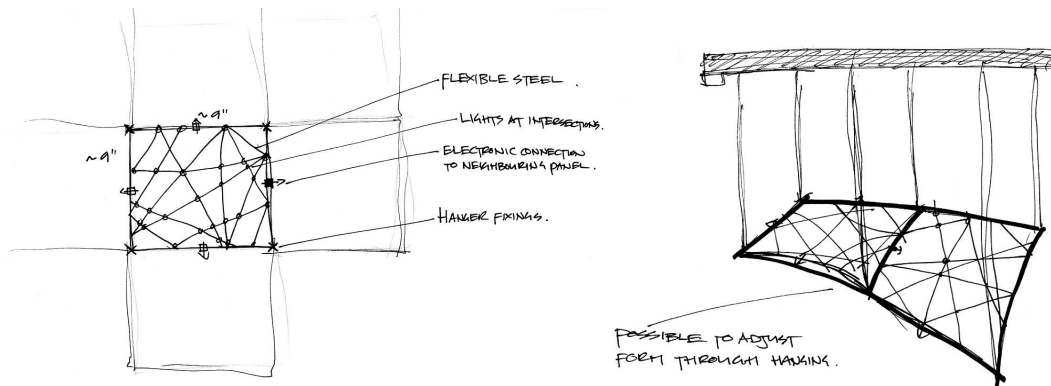 ~9"
~9"
FLEXIBLE STEEL.
LIGHTS AT INTERSECTIONS.
ELECTRONIC CONNECTION
TO NEIGHBOURING PANEL.
HANGER FIXINGS.
POSSIBLE TO ADJUST
FORM THROUGH HANGING.